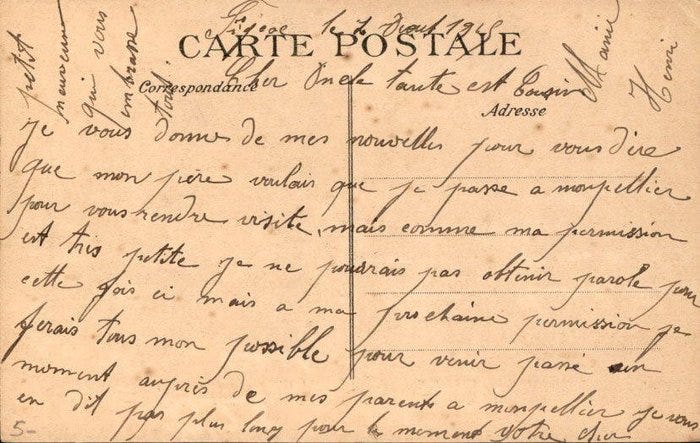 le 7 Aout 191
CARTE POSTALE
Correspondance
Adresse
Cher Oncle tante est Cousin
Je vous donne de mes nouvelles pour vous dire
que mon père voulais que je passe a monpellier
pour vous rendre visite, mais comme ma permission
est tris petite je ne pourrais pas obtenir parole pour
cette fois ci mais a ma prochaine permission je
ferais tous mon possible pour venir passé un
moment auprès de mes parents a monpellier je vous
en dit pas plus long pour le moment votre cher
petit
neuveux
qui vous
embrasse
tous
Henri
5-